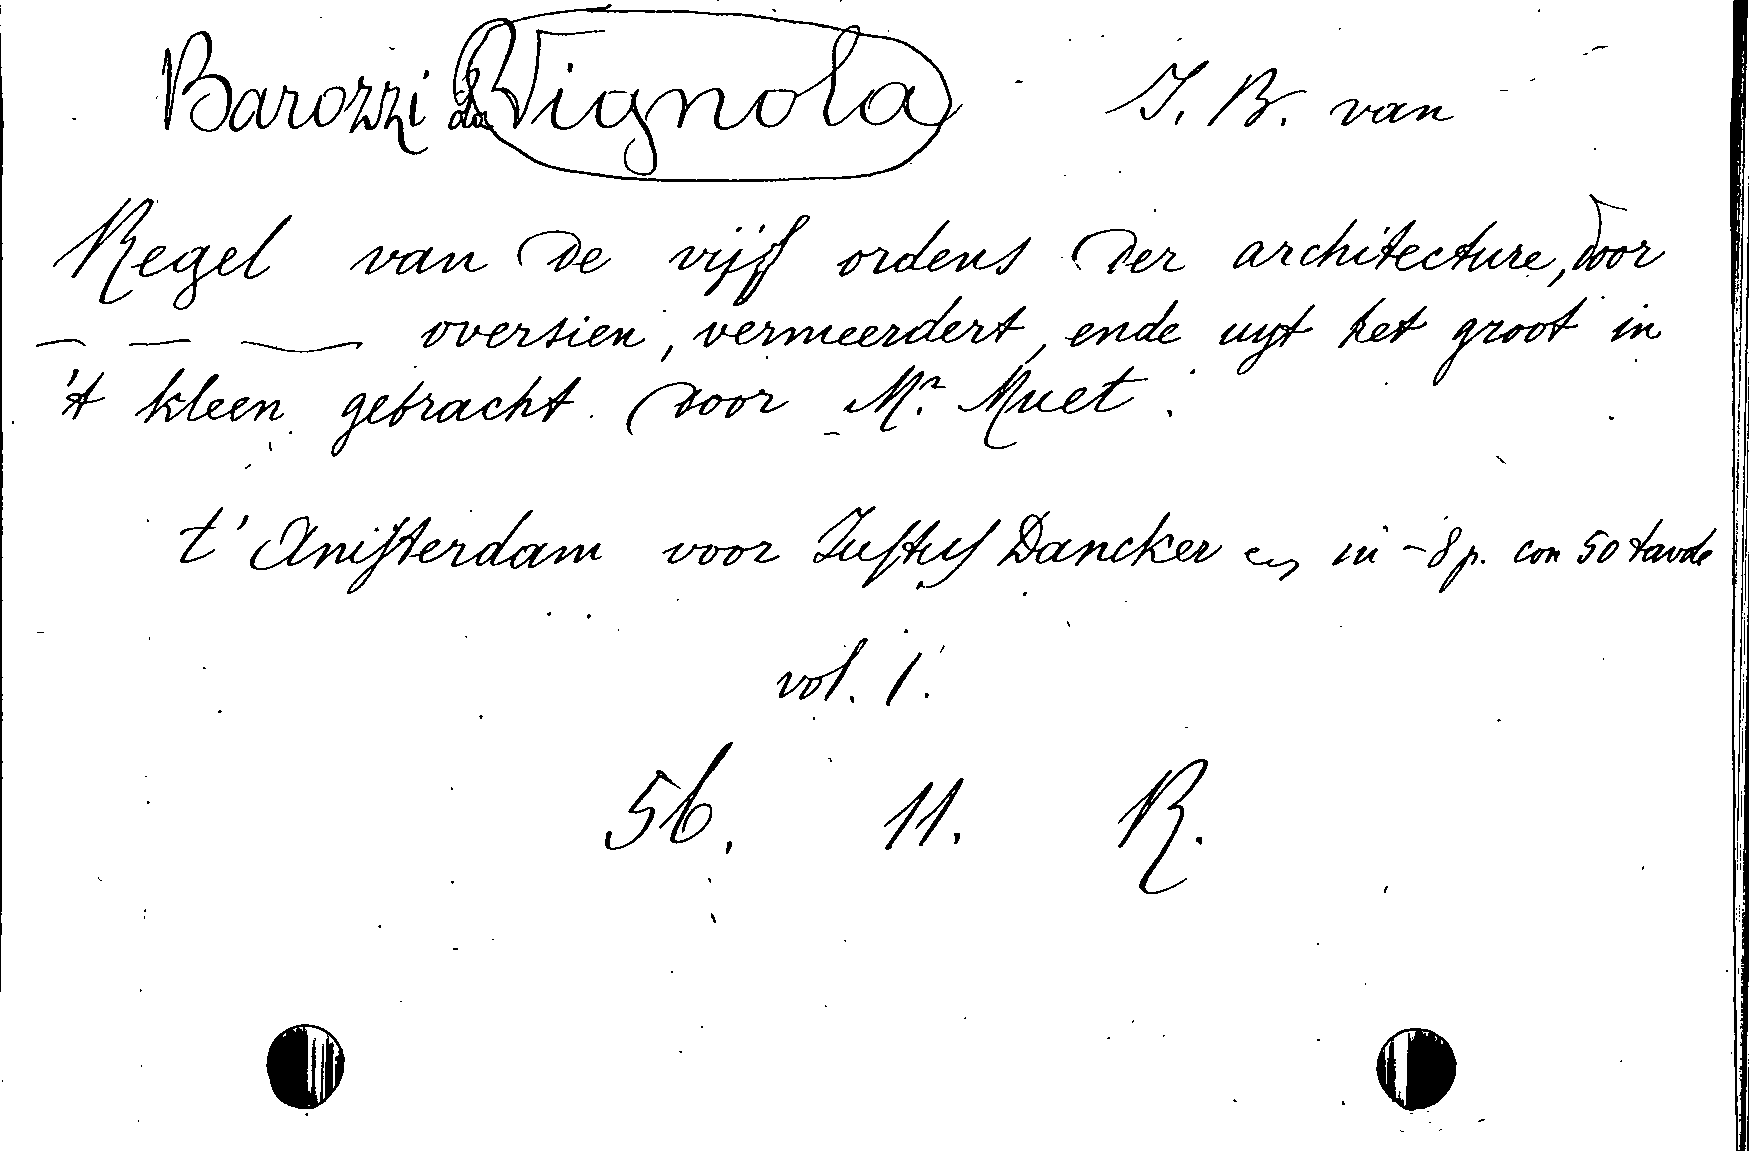 Barozzi da Vignola J. B. van
Regel van de vijf ordens der architecture, door
— — — oversien, vermeerdert, ende uyt het groot in
't kleen gebracht door Mr. Muet.
t' Amsterdam voor Justus Dancker in - 8 p. con 50 tavole
vol. 1.
56. 11. R.